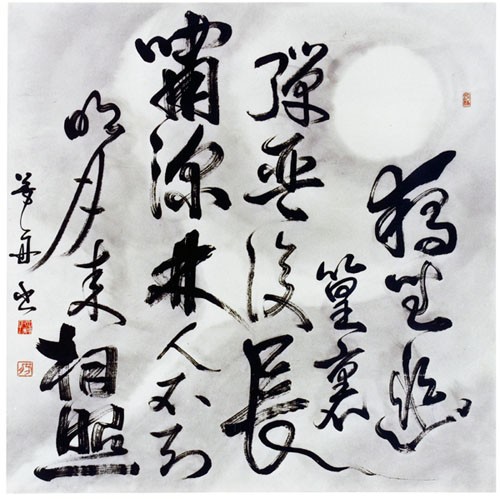 獨坐幽
篁裏
彈琴復長
嘯深林人不知
明月來相照